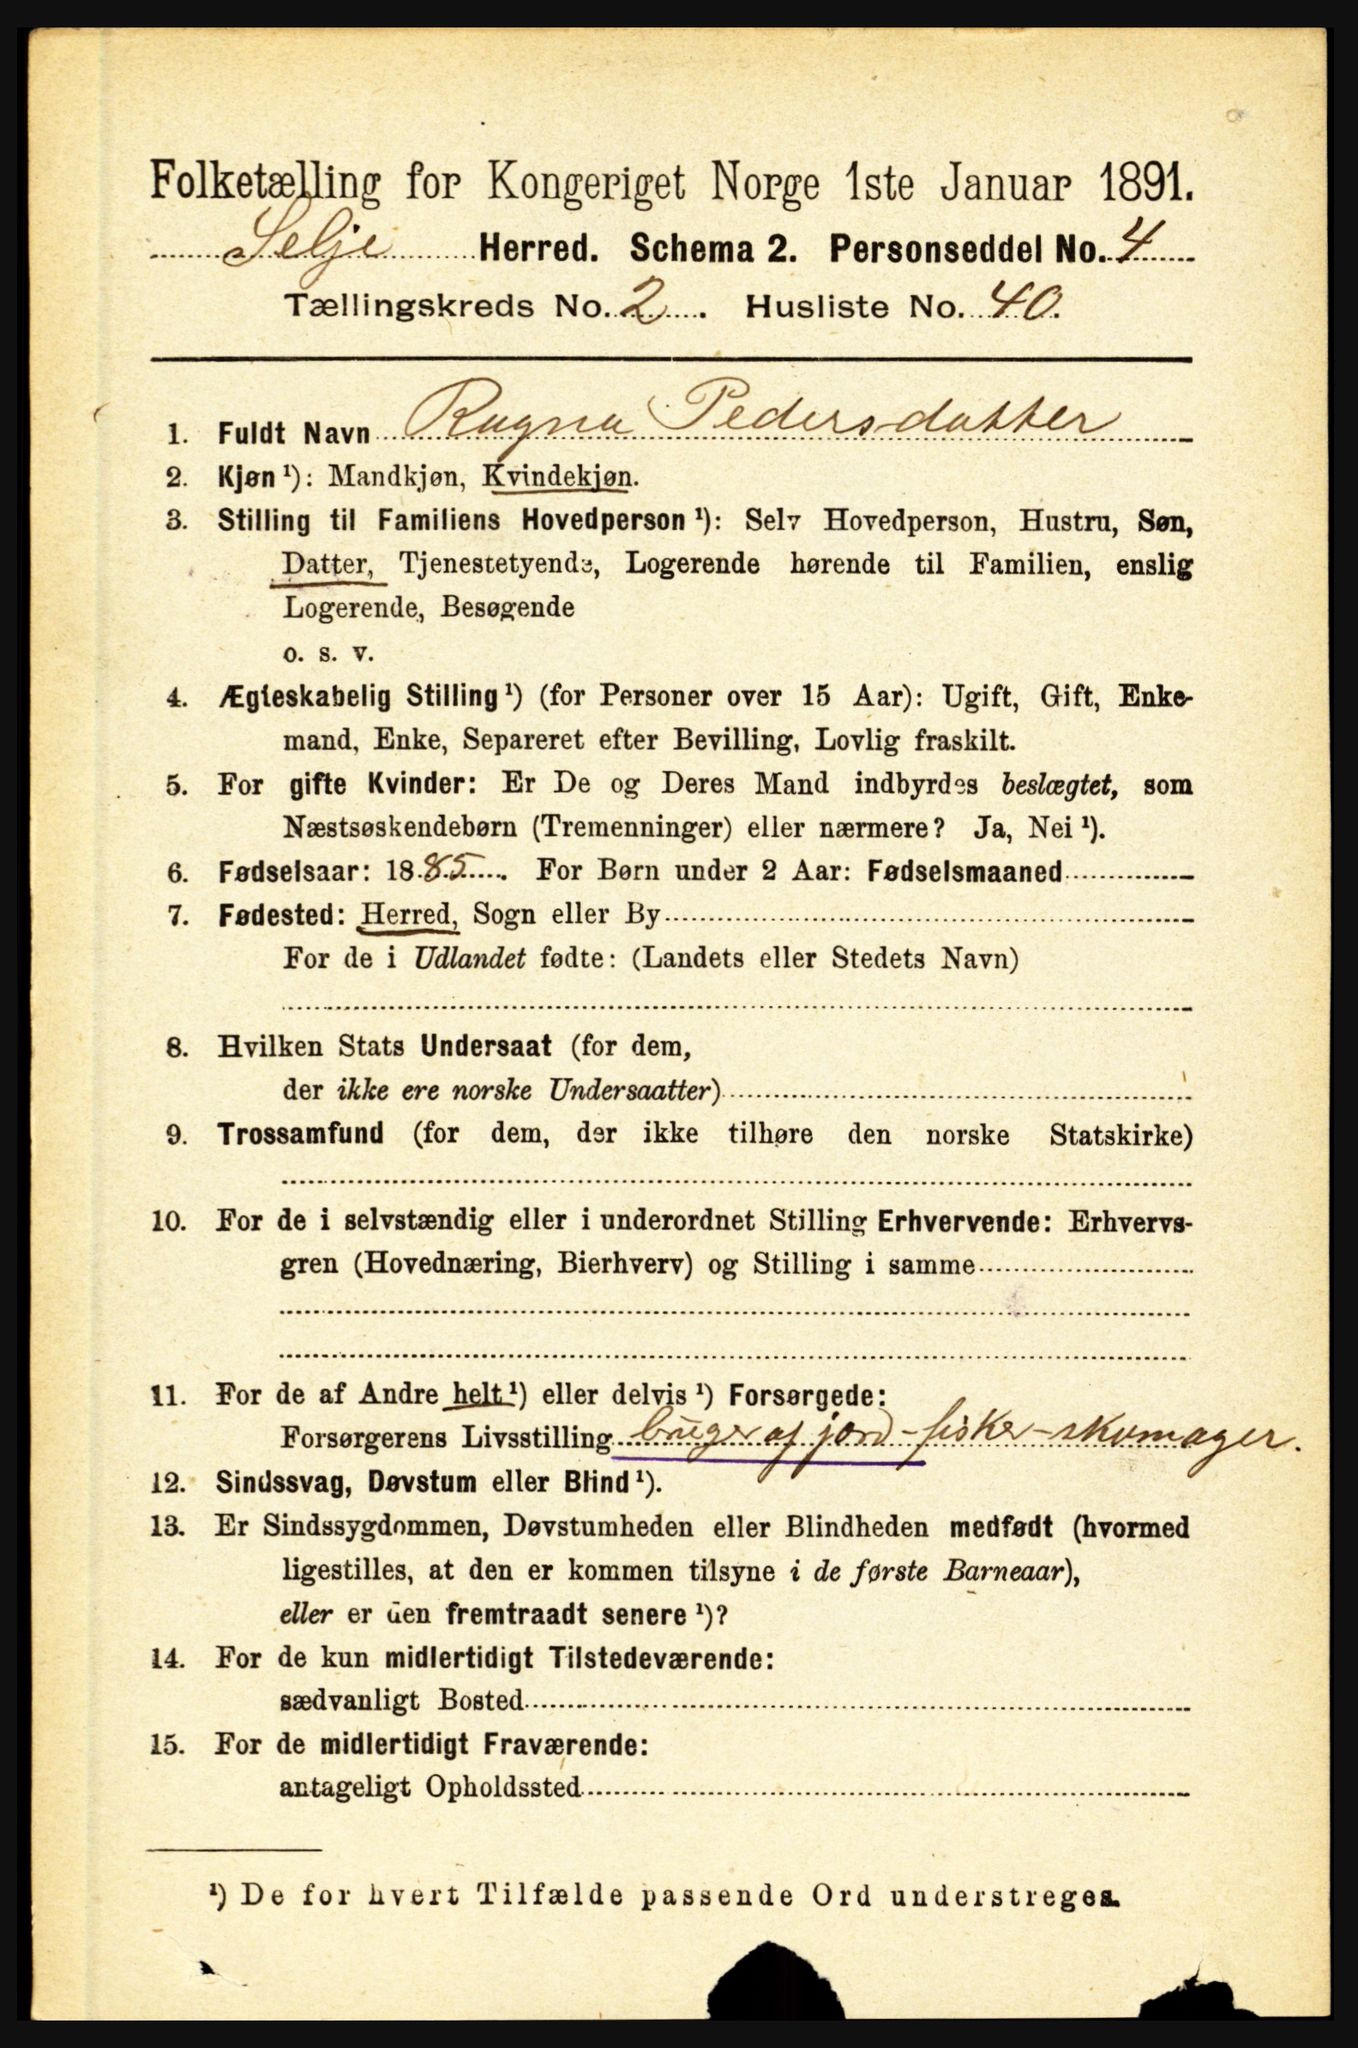 Folketælling for Kongeriget Norge 1ste Januar 1891.
Selje Herred. Schema 2. Personseddel No. 4
Tællingskreds No. 2. Husliste No. 40.
1. Fuldt Navn Ragna Pedersdatter
2. Kjøn¹): Mandkjøn, Kvindekjøn.
3. Stilling til Familiens Hovedperson¹): Selv Hovedperson, Hustru, Søn,
Datter, Tjenestetyende, Logerende hørende til Familien, enslig
Logerende, Besøgende
o. s. v.
4. Ægteskabelig Stilling¹) (for Personer over 15 Aar): Ugift, Gift, Enke-
mand, Enke, Separeret efter Bevilling, Lovlig fraskilt.
5. For gifte Kvinder: Er De og Deres Mand indbyrdes beslægtet, som
Næstsøskendebørn (Tremenninger) eller nærmere? Ja, Nei¹).
6. Fødselsaar: 1885. For Børn under 2 Aar: Fødselsmaaned
7. Fødested: Herred, Sogn eller By
For de i Udlandet fødte: (Landets eller Stedets Navn)
8. Hvilken Stats Undersaat (for dem,
der ikke ere norske Undersaatter)
9. Trossamfund (for dem, der ikke tilhøre den norske Statskirke)
10. For de i selvstændig eller i underordnet Stilling Erhvervende: Erhvervs-
gren (Hovednæring, Bierhverv) og Stilling i samme
11. For de af Andre helt¹) eller delvis¹) Forsørgede:
Forsørgerens Livsstilling bruger af jord - fisker - skomager.
12. Sindssvag, Døvstum eller Blind¹).
13. Er Sindssygdommen, Døvstumheden eller Blindheden medfødt (hvormed
ligestilles, at den er kommen tilsyne i de første Barneaar),
eller er den fremtraadt senere¹)?
14. For de kun midlertidigt Tilstedeværende:
sædvanligt Bosted
15. For de midlertidigt Fraværende:
antageligt Opholdssted
¹) De for hvert Tilfælde passende Ord understreges.